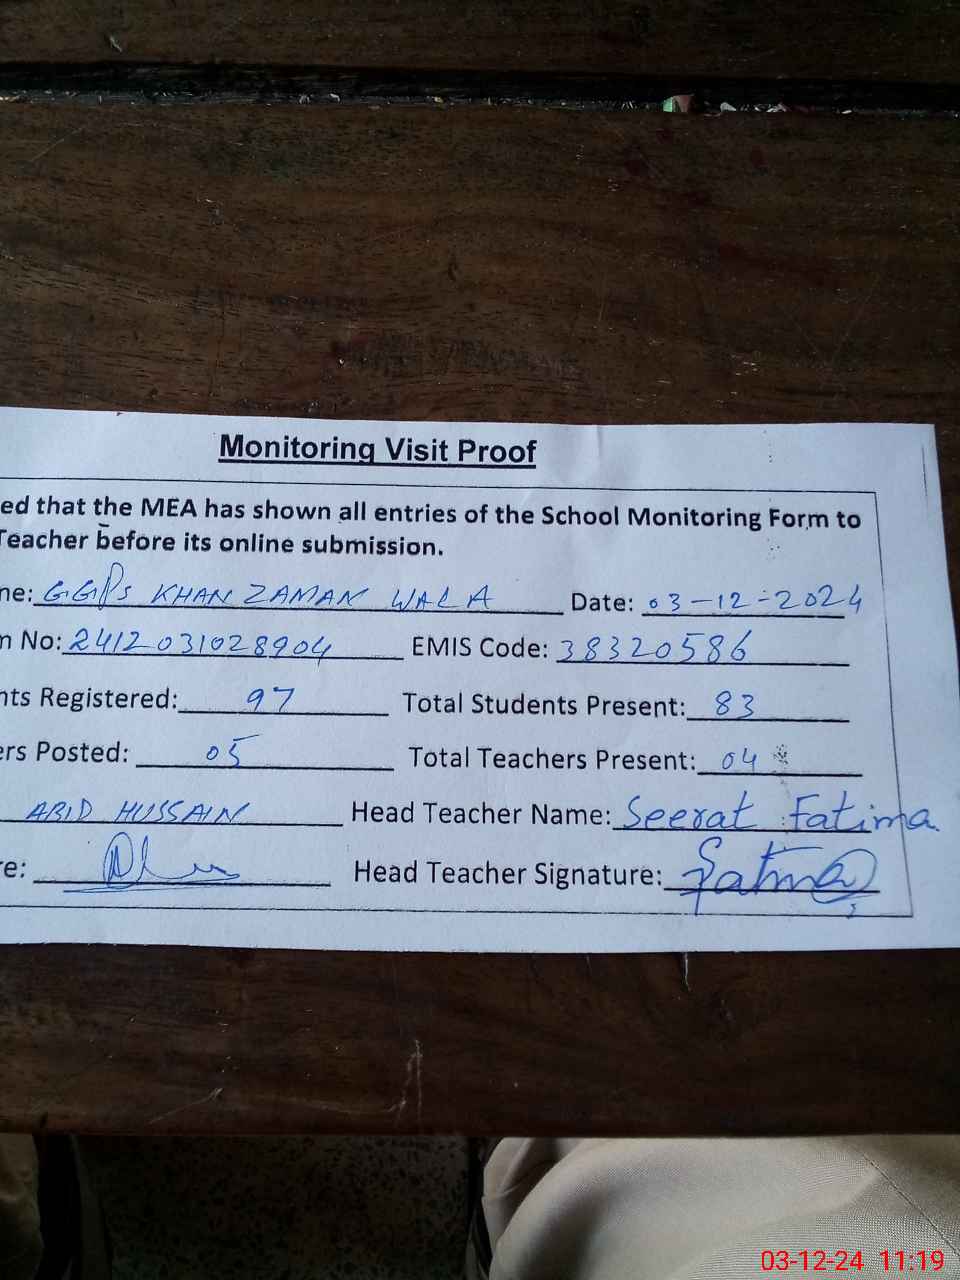 Monitoring Visit Proof
ed that the MEA has shown all entries of the School Monitoring Form to
Teacher before its online submission.
ne: GGPS KHAN ZAMAN WALA Date: 03-12-2024
n No: 2412031028904 EMIS Code: 38320586
nts Registered: 97 Total Students Present: 83
ers Posted: 05 Total Teachers Present: 04
ABID HUSSAIN Head Teacher Name: Seerat Fatima
re: Head Teacher Signature: Fatima
03-12-24 11:19